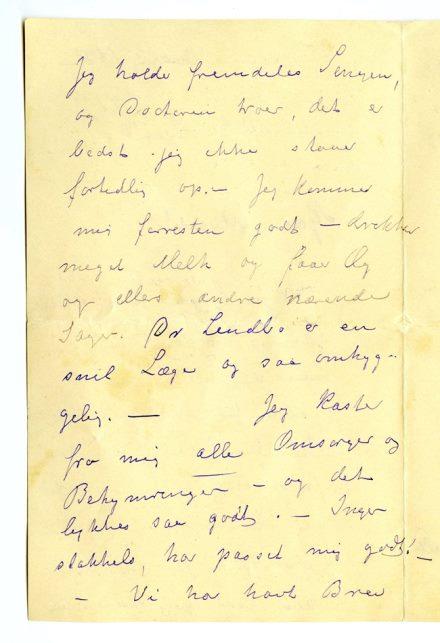 Jeg holder fremdeles Sengen,
og Doctoren troer, det er
bedst jeg ikke staaer
fortidlig op. — Jeg kommer
mig forresten godt — drikker
meget Melk og faaer Æg
og ellers andre nærende
Sager. Dr er en
snil Læge og saa omhyg-
gelig. — Jeg kaster
fra mig alle Omsorger og
Bekymringer — og det
lykkes saa godt. — Inger
stakkels, har passet mig godt! —
— Vi har havt Brev